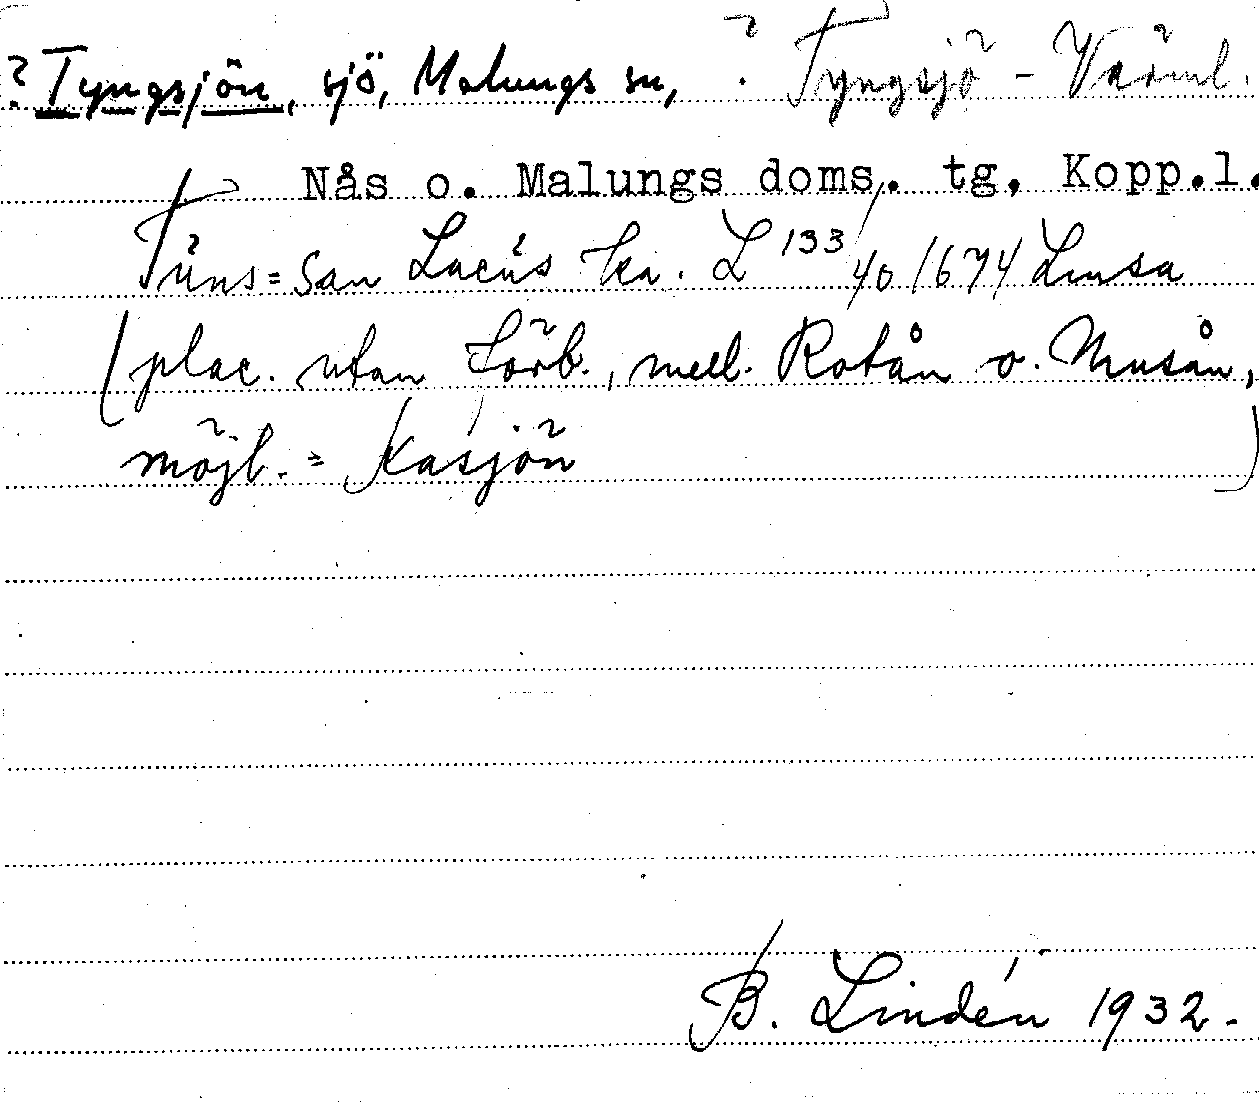 ? Tyngsjön, sjö, Malungs sn, ? Tyngsjö - Värml.
Nås o. Malungs doms. tg, Kopp.l.
Tüns=San Lacus ka. L 133/40 1674 Lmsa
(plac. utan förb., mell. Rotån o. Musån,
möjl. = Kasjön )
B. Lindén 1932.